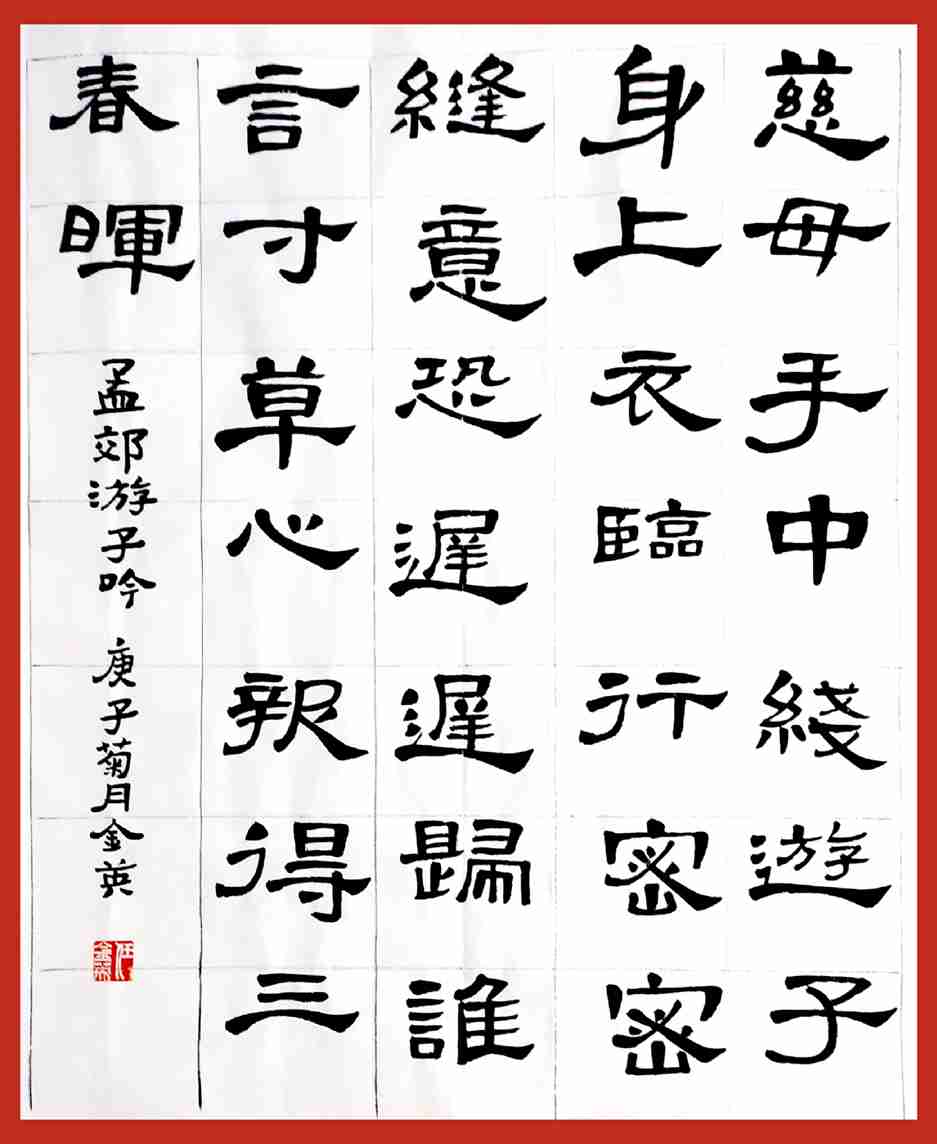 慈母手中綫遊子
身上衣臨行密密
縫意恐遲遲歸誰
言寸草心報得三
春暉
孟郊游子吟 庚子菊月金英